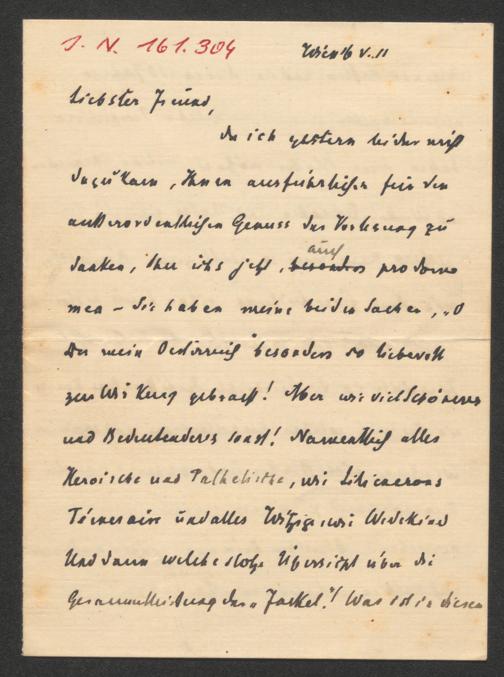 J. N. 161.304
Wien 16 V. 11
Liebster Freund,
da ich gestern leider nicht
dazu kam, Ihnen ausführlicher für den
außerordentlichen Genuss der Vorlesung zu
danken, thu ichs jetzt, auch pro domo
mea – Sie haben meine beiden Sachen, „O
Du mein Oesterreich" besonders so liebevoll
zur Wirkung gebracht! Aber wie viel Schöneres
und Bedeutenderes sonst! Namentlich alles
Heroische und Pathetische, wie Liliencrons
und alles Witzige wie Wedekind
Und dann welche stolze Übersicht über die
Gesammtleistung der „Fackel"! Was ist in diesen